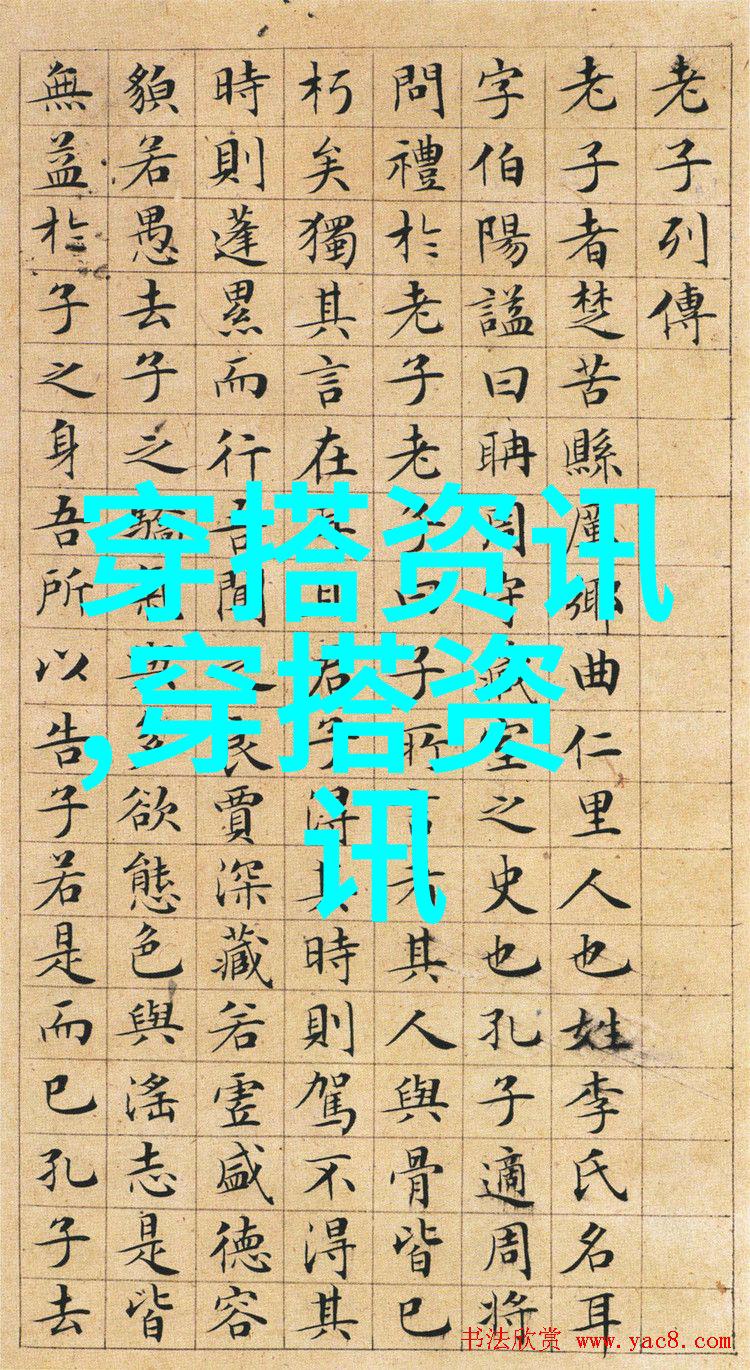 老子列傳
老子者楚苦縣厲鄉曲仁里人也姓李氏名耳
字伯陽謚曰聃周守藏室之史也孔子適周將
問禮於老子老子曰子所言者其人與骨皆已
朽矣獨其言在耳且君子得其時則駕不得其
時則蓬累而行吾聞之良賈深藏若虛盛德容
䫉若愚去子之驕氣與多欲態色與淫志是皆
無益於子之身吾所以告子若是而已孔子去
穿搭资讯
,穿搭资
讯
书法欣赏 www.yac8.com